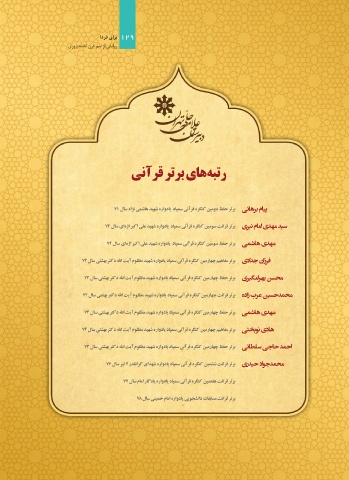 ۱۲۹
برای فردا
روایتی از نیم قرن اندیشه‌ورزی
دبیرستان علامه حلی تهران
رتبه‌های برتر قرآنی
پیام برهانی برتر حفظ دومین کنگره قرآنی سمپاد یادواره شهید هاشمی نژاد سال ۷۱
سید مهدی امام نیری برتر قرائت سومین کنگره قرآنی سمپاد یادواره شهید علی اکبر اژه‌ای سال ۷۲
مهدی هاشمی برتر حفظ سومین کنگره قرآنی سمپاد یادواره شهید علی اکبر اژه‌ای سال ۷۲
فرزان حدادی برتر مفاهیم چهارمین کنگره قرآنی سمپاد یادواره شهید مظلوم آیت الله دکتر بهشتی سال ۷۳
محسن بهرامگیری برتر حفظ چهارمین کنگره قرآنی سمپاد یادواره شهید مظلوم آیت الله دکتر بهشتی سال ۷۳
محمدحسین عرب زاده برتر قرائت چهارمین کنگره قرآنی سمپاد یادواره شهید مظلوم آیت الله دکتر بهشتی سال ۷۳
مهدی هاشمی برتر حفظ چهارمین کنگره قرآنی سمپاد یادواره شهید مظلوم آیت الله دکتر بهشتی سال ۷۳
هادی نوبختی برتر مفاهیم چهارمین کنگره قرآنی سمپاد یادواره شهید مظلوم آیت الله دکتر بهشتی سال ۷۳
احمد حاجی سلطانی برتر حفظ چهارمین کنگره قرآنی سمپاد یادواره شهید مظلوم آیت الله دکتر بهشتی سال ۷۳
محمدجواد حیدری برتر قرائت ششمین کنگره قرآنی سمپاد یادواره شهدای گرانقدر ۷ تیر سال ۷۶
برتر قرائت هفتمین کنگره قرآنی سمپاد یادواره یادگار امام سال ۷۷
برتر قرائت مسابقات دانشجویی یادواره امام خمینی سال ۷۸